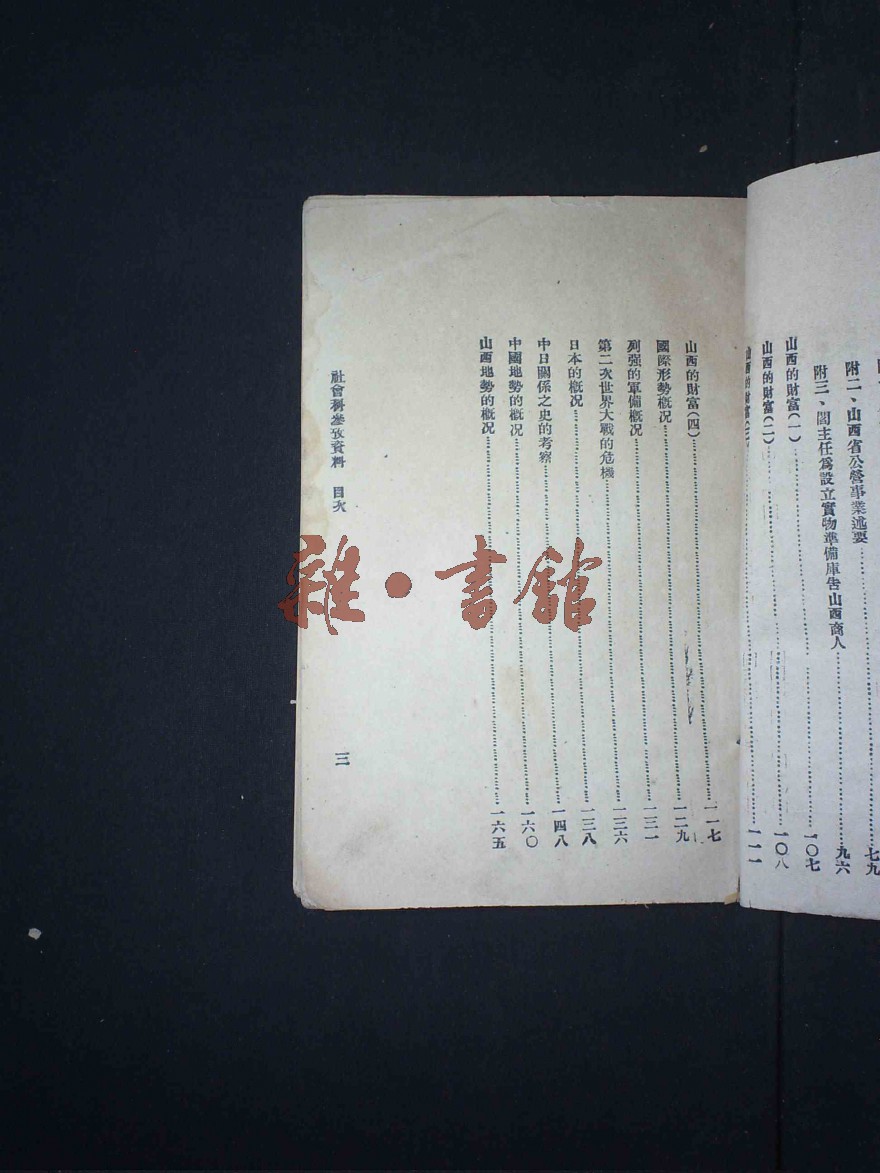 附二、山西省公營事業述要……七九
附三、閻主任爲設立實物準備庫吿山西商人……九六
山西的財富(一)……一〇七
山西的財富(二)……一〇八
山西的財富(三)……一一一
山西的財富(四)……一一七
國際形勢概况……一二九
列强的軍備概况……一三一
第二次世界大戰的危機……一三六
日本的概况……一三八
中日關係之史的考察……一四八
中國地勢的概况……一六〇
山西地勢的概况……一六五
社會科參攷資料 目次
三
雜·書館